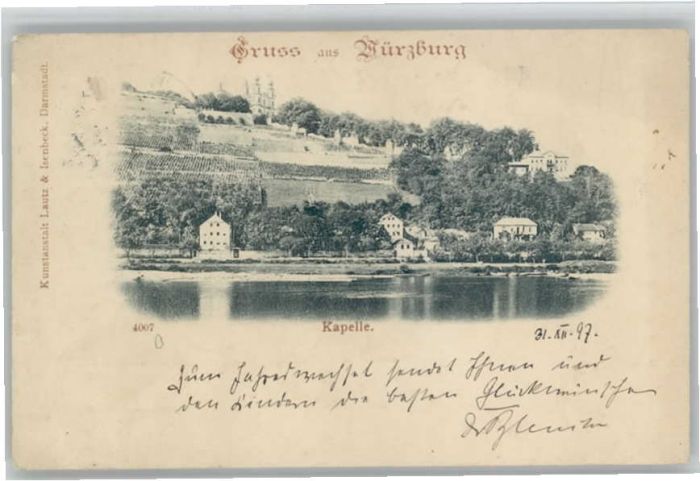 Gruss aus Würzburg
Kunstanstalt Lautz & Isenbeck, Darmstadt.
4007
Kapelle.
31. XII. 97.
Zum Jahreswechsel sendet Ihnen und
den Kindern die besten Glückwünsche